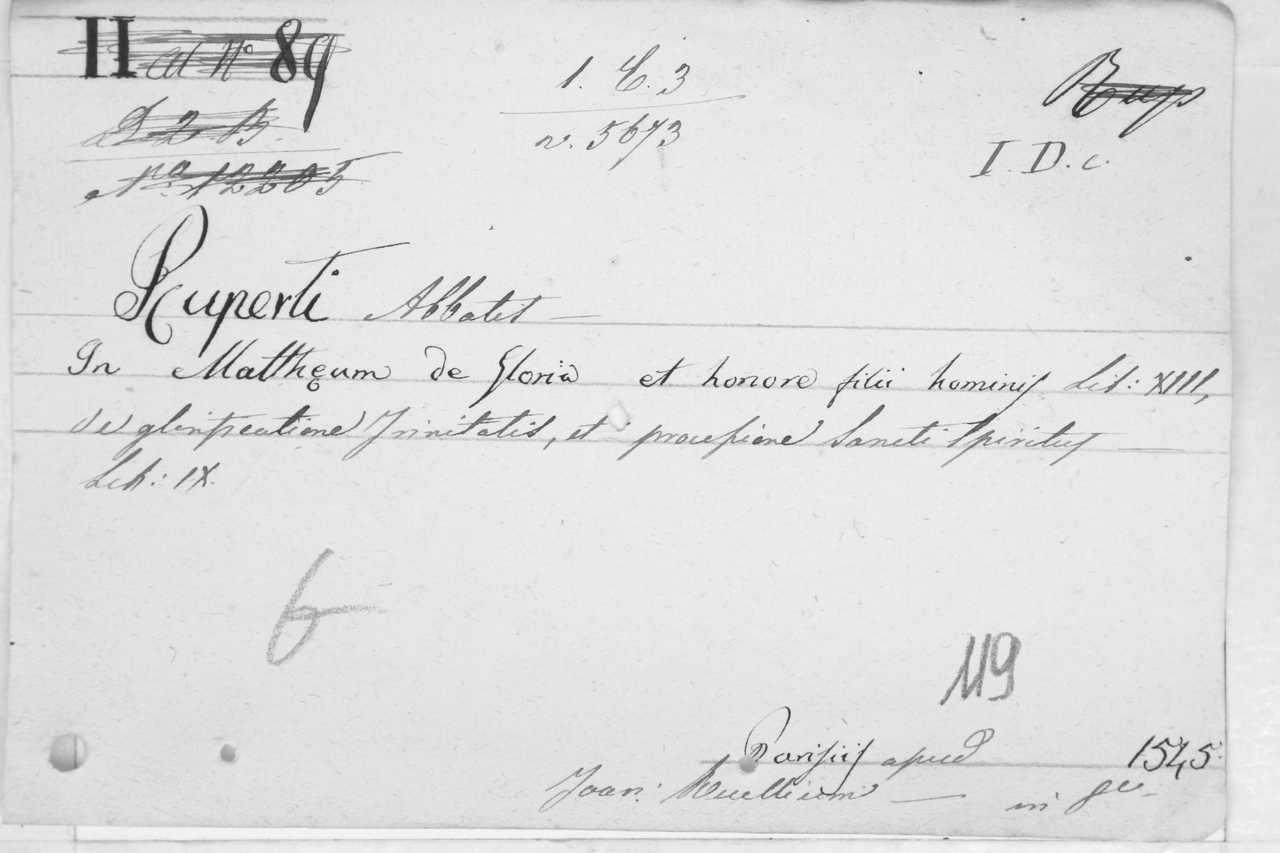 II ad No 89
1. C. 3
D 2 B.
n. 5673
I. D. c.
No. 12205
Ruperti Abbatis —
In Matthęum de Gloria et honore filii hominis Lib: XIII,
de glorificatione Trinitatis, et processione Sancti Spiritus —
Lib: IX.
119
Parisiis apud 1545.
Joan: Ruellium — in 8vo